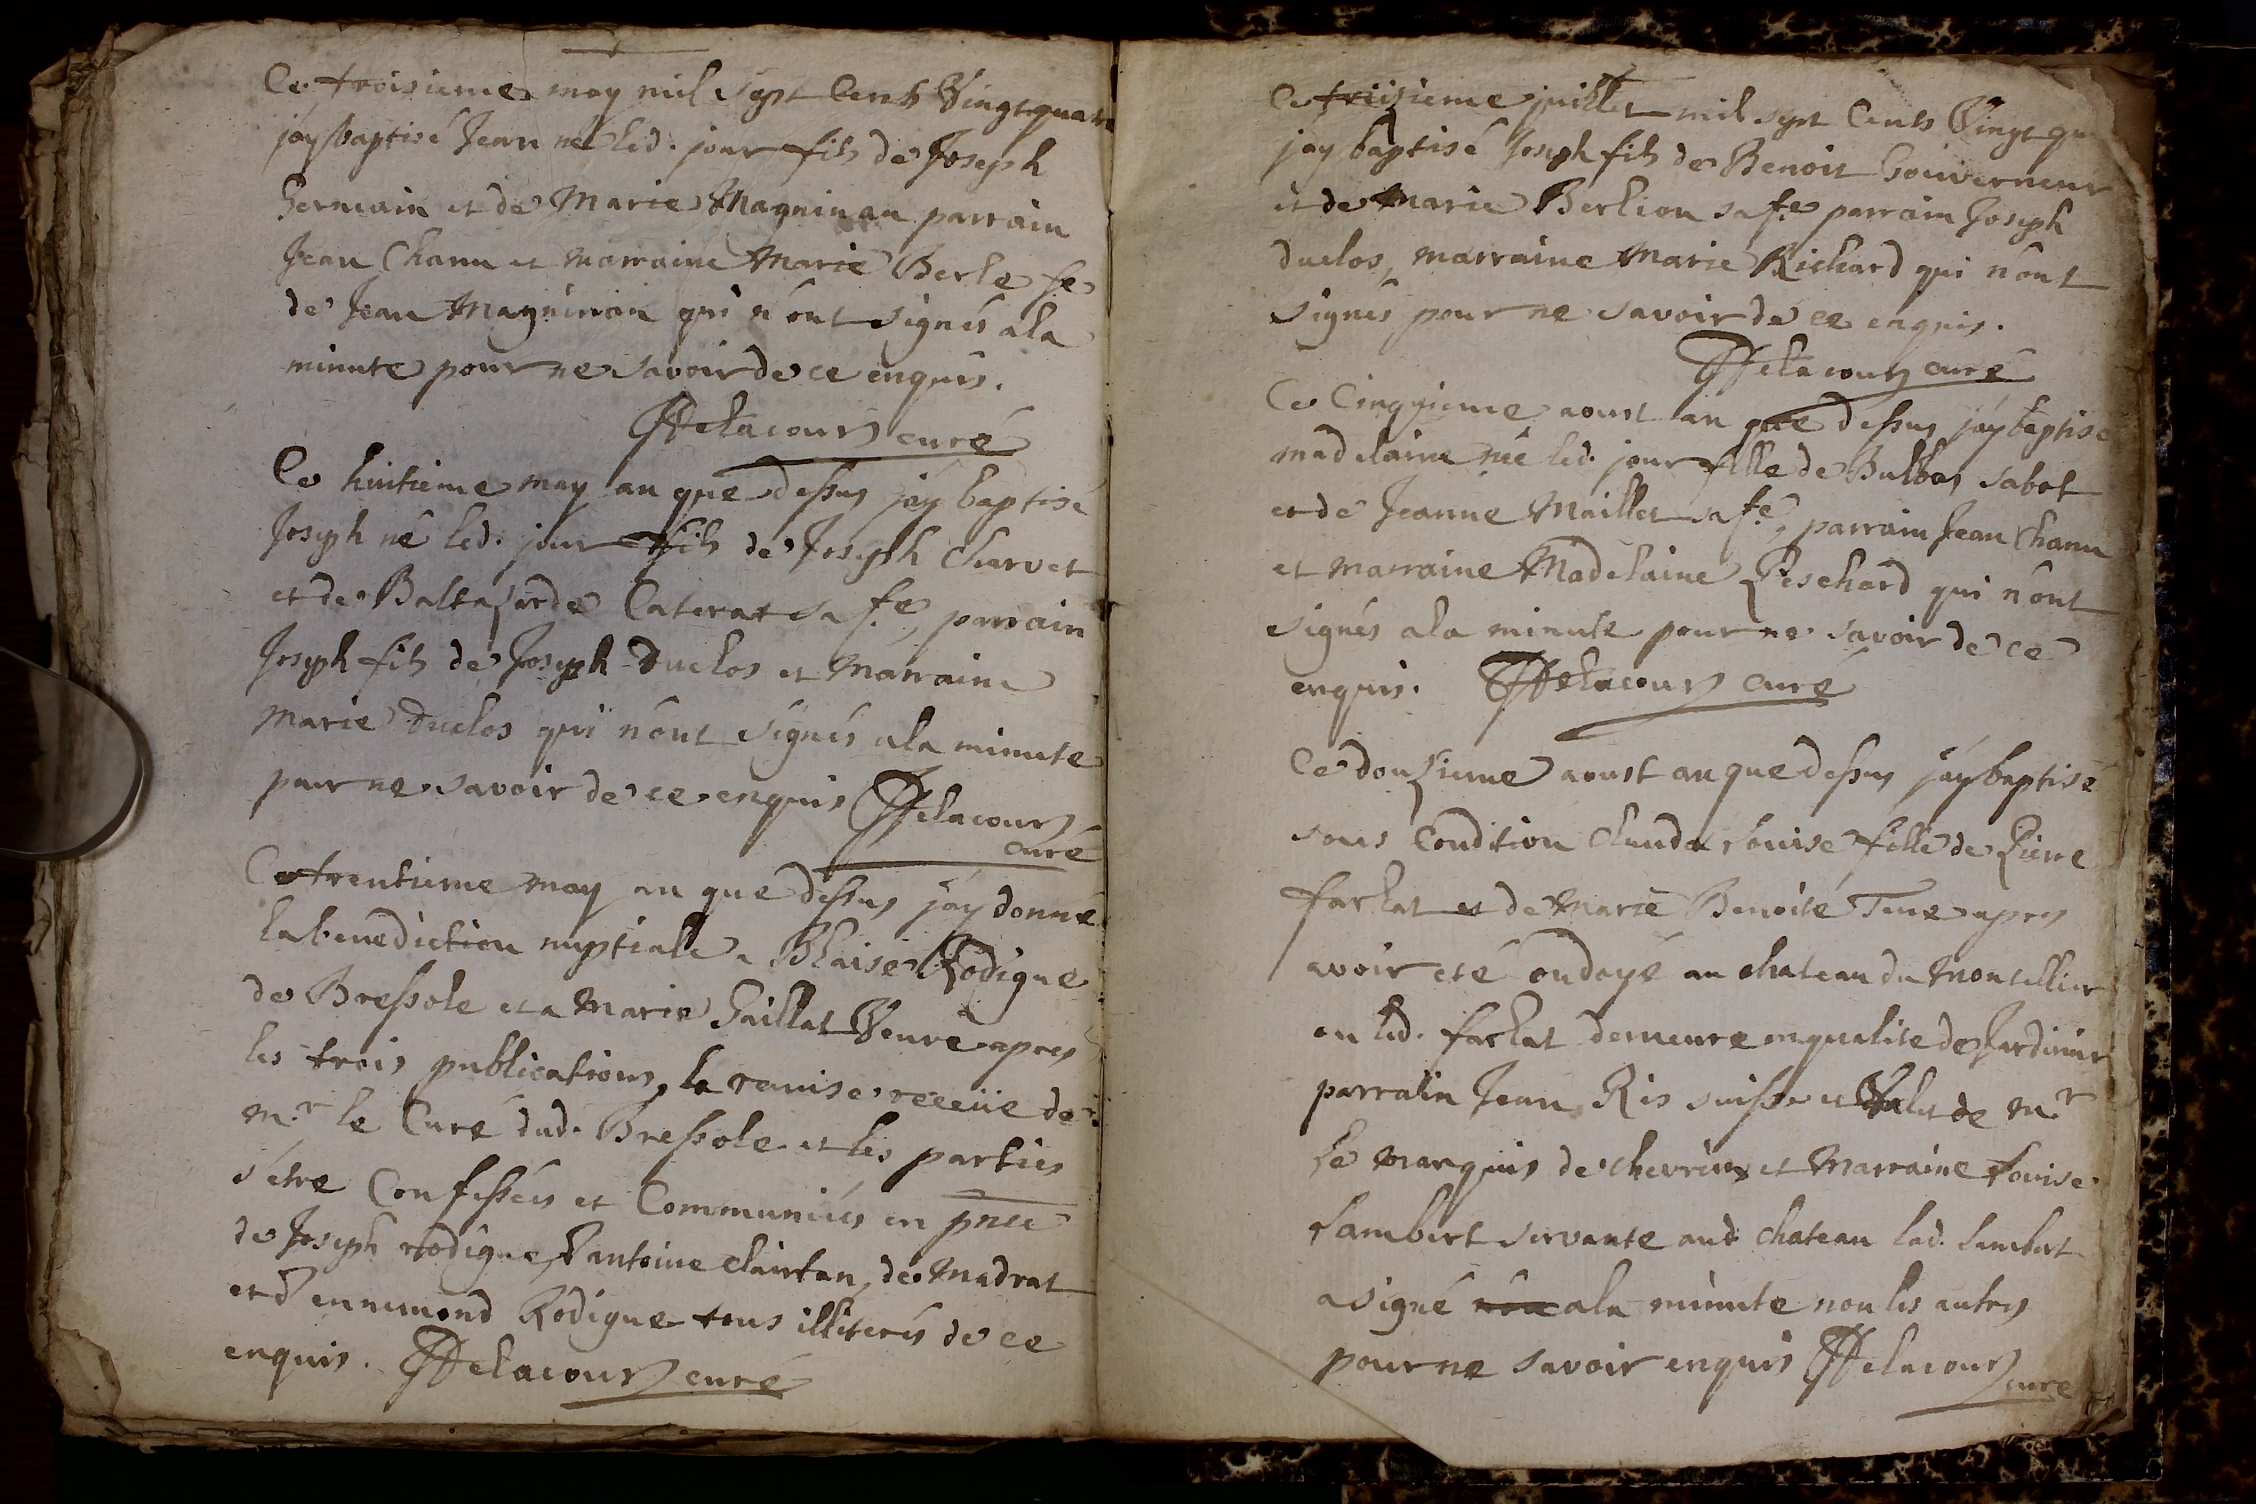 Ce troisieme may mil sept Cents Vingt quatre
j'ay baptisé Jean né led. jour fils de Joseph
Germain et de Marie Magninan parrain
Jean Chanu et marraine Marie Berle fe
de Jean Magninan qui n'ont signés a la
minute pour ne savoir de ce enquis.
Delacour curé
Ce huitieme may an que dessus j'ay baptisé
Joseph né led. jour fils de Joseph Charvet
et de Baltazarde Caterat sa fe, parrain
Joseph fils de Joseph Duclos et Marraine
Marie Duclos qui n'ont signés a la minute
pour ne savoir de ce enquis Delacour
curé
Ce trentieme may an que dessus j'ay donné
la benediction nuptiale a Blaise Rodigue
de Bressole et a Marie Gaillat Veuve apres
les trois publications, la remise receüe de
Mr le Curé dud. Bressole et les parties
s'étre Confessées et Communiées en pnce
de Joseph rodigue, d'antoine clairtan, de Madrat
et d'ennemond Rodigue tous illiterés de ce
enquis. Delacour curé
Ce treizieme juillet mil sept Cents Vingt qu
j'ay baptisé Joseph fils de Benoit Gouverneur
et de Marie Berlion sa fe parrain Joseph
duclos, marraine Marie Richard qui n'ont
signés pour ne savoir de ce enquis.
Delacour curé
Ce Cinqieme aoust an que dessus j'ay baptisé
madelaine née led. jour fille de Bulbas sabot
et de Jeanne Maillet sa fe, parrain Jean Chanu
et marraine Madelaine Peschard qui n'ont
signés a la minute pour ne savoir de ce
enquis. Delacour curé
Ce douzieme aoust an que dessus j'ay baptisé
sous Condition Clauda Louise fille de Pierre
farlat et de Marie Benoite Teue apres
avoir eté ondoyé au chateau du Montellier
ou led. farlat demeure en qualite de Jardinier
parrain Jean Ris suisse et Valet de Mr
Le Marquis de chevriers et Marraine Louise
Lambert servante aud. chateau lad. Lambert
a signé a la minute non les autres
pour ne savoir enquis Delacour
curé